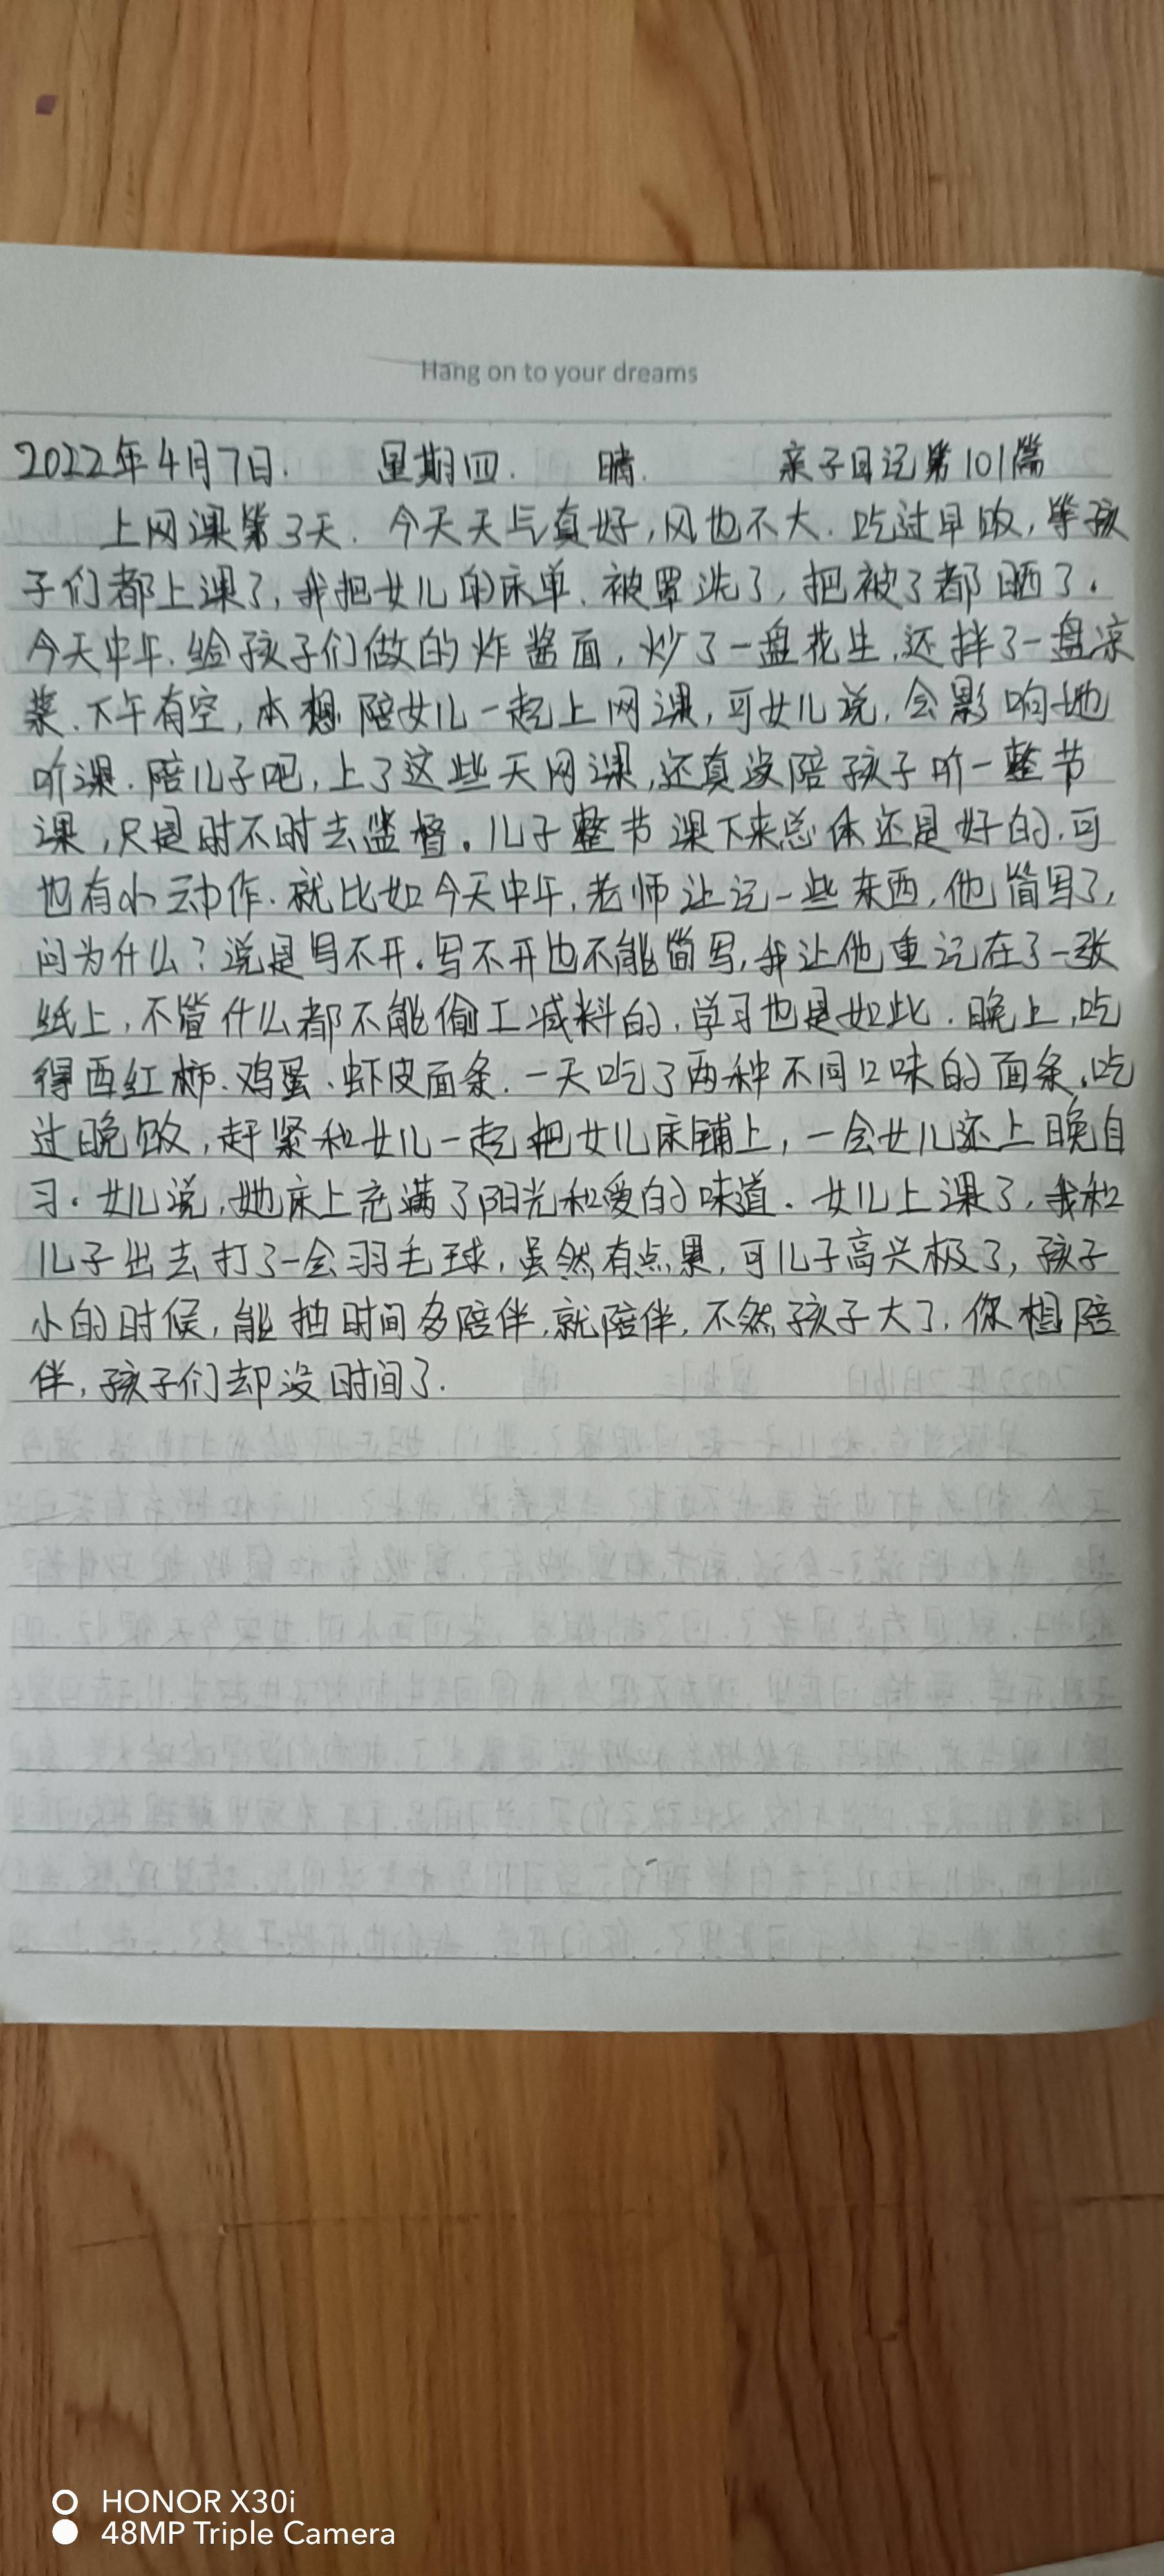 Hang on to your dreams
2022年4月7日. 星期四. 晴. 亲子日记第101篇
上网课第3天. 今天天气真好,风也不大. 吃过早饭,等孩
子们都上课了,我把女儿的床单、被罩洗了,把被子都晒了.
今天中午、给孩子们做的炸酱面,炒了一盘花生,还拌了一盘凉
菜.下午有空,本想陪女儿一起上网课,可女儿说,会影响她
听课.陪儿子吧,上了这些天网课,还真没陪孩子听一整节
课,只是时不时去监督。儿子整节课下来总体还是好的,可
也有小动作.就比如今天中午,老师让记一些东西,他简写了,
问为什么?说是写不开.写不开也不能简写,我让他重记在了一张
纸上,不管什么都不能偷工减料的,学习也是如此.晚上,吃
得西红柿、鸡蛋、虾皮面条.一天吃了两种不同口味的面条.吃
过晚饭,赶紧和女儿一起把女儿床铺上,一会女儿还上晚自
习.女儿说,她床上充满了阳光和爱的味道.女儿上课了,我和
儿子出去打了一会羽毛球,虽然有点累,可儿子高兴极了,孩子
小的时候,能抽时间多陪伴,就陪伴,不然孩子大了,你想陪
伴,孩子们却没时间了.
HONOR X30i
48MP Triple Camera